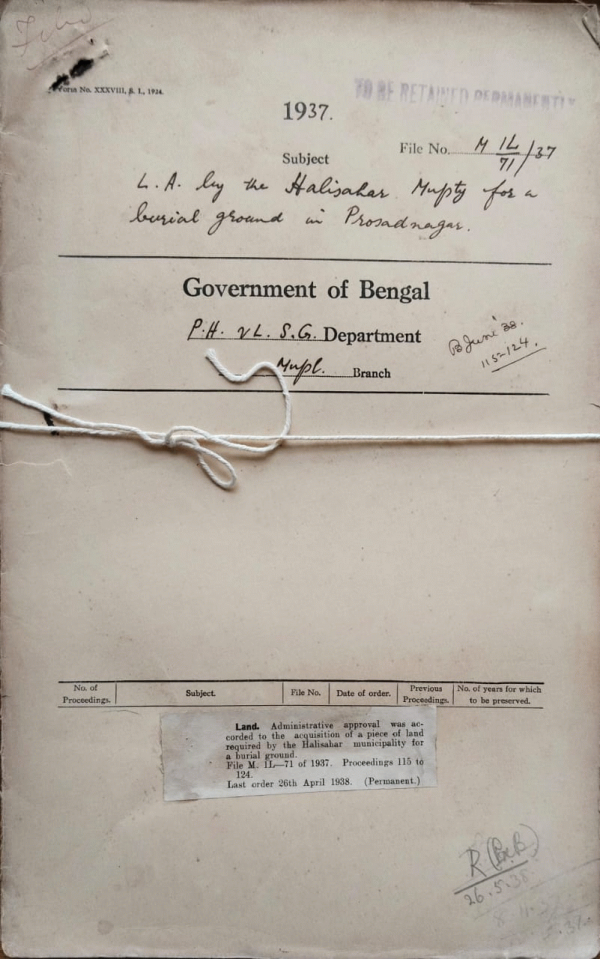 Form No. XXXVIII, S. I., 1934.
TO BE RETAINED PERMANENTLY
1937.
File No. M 1L/71/37
Subject
L.A. by the Halisahar Mupty for a
burial ground in Prosadnagar.
Government of Bengal
P.H. & L.S.G. Department
B June '38.
115-124.
Mupl. Branch
No. of Proceedings. Subject. File No. Date of order. Previous Proceedings. No. of years for which to be preserved.
Land. Administrative approval was ac-
corded to the acquisition of a piece of land
required by the Halisahar municipality for
a burial ground.
File M. 1L—71 of 1937. Proceedings 115 to
124.
Last order 26th April 1938. (Permanent.)
26.5.38